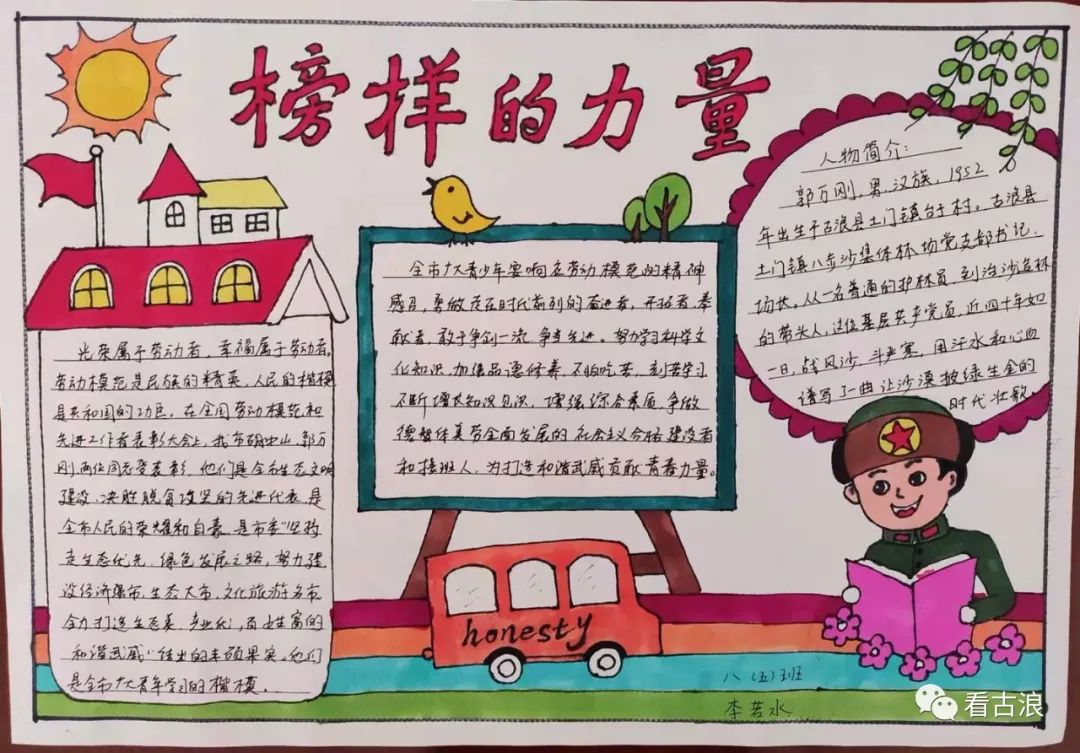 榜样的力量
人物简介:
郭万刚,男,汉族,1952
年出生于古浪县土门镇台子村。古浪县
土门镇八步沙集体林场党支部书记、
场长。从一名普通的护林员,到治沙造林
的带头人,这位基层共产党员,近四十年如
一日,战风沙、斗严寒,用汗水和心血
谱写了一曲让沙漠披绿生金的
时代壮歌
全市广大青少年要响应劳动模范的精神
感召,勇做走在时代前列的奋进者、开拓者、奉
献者,敢于争创一流、争当先进。努力学习科学文
化知识,加强品德修养,不怕吃苦,刻苦学习
不断增长知识见识,增强综合素质,争做
德智体美劳全面发展的社会主义合格建设者
和接班人,为打造和谐武威贡献青春力量。
光荣属于劳动者,幸福属于劳动者。
劳动模范是民族的精英,人民的楷模
是共和国的功臣。在全国劳动模范和
先进工作者表彰大会上,我市确中山,郭万
刚两位同志受表彰,他们是全市生态文明
建设、决胜脱贫攻坚的先进代表,是
全市人民的荣耀和自豪,是市委"坚持
走生态优先、绿色发展之路,努力建
设经济强市,生态大市,文化旅游名市
全力打造生态美、产业优、百姓富的
和谐武威"结出的丰硕果实。他们
是全市广大青年学习的楷模.
honesty
八(五)班
李若水
看古浪